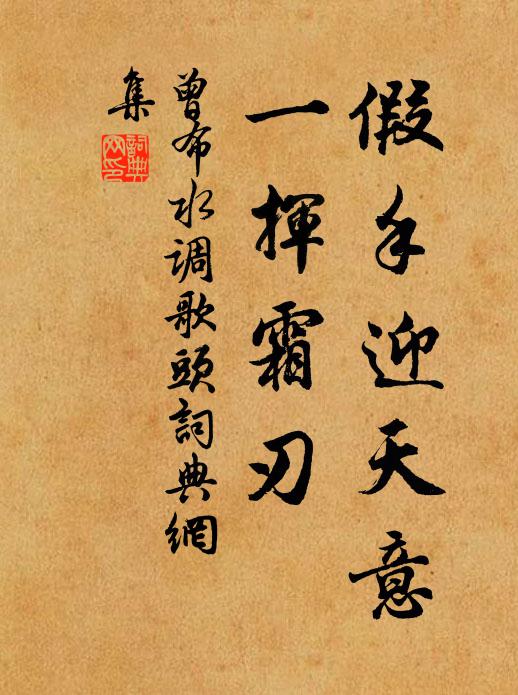 假手迎天意
一揮霜刃
曾布水调歌頭詞典網
集
詞典網印